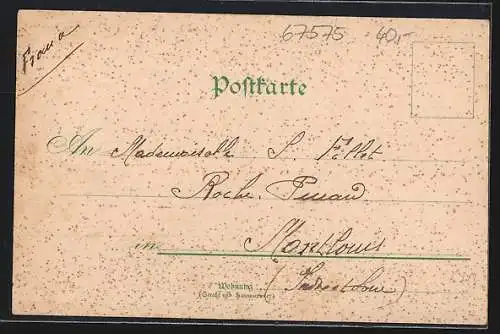 67575 40,-
Postkarte
An Mademoiselle S.
Roche
in Montlouis
Wohnung
(Indre et Loire)
(Straße und Hausnummer)